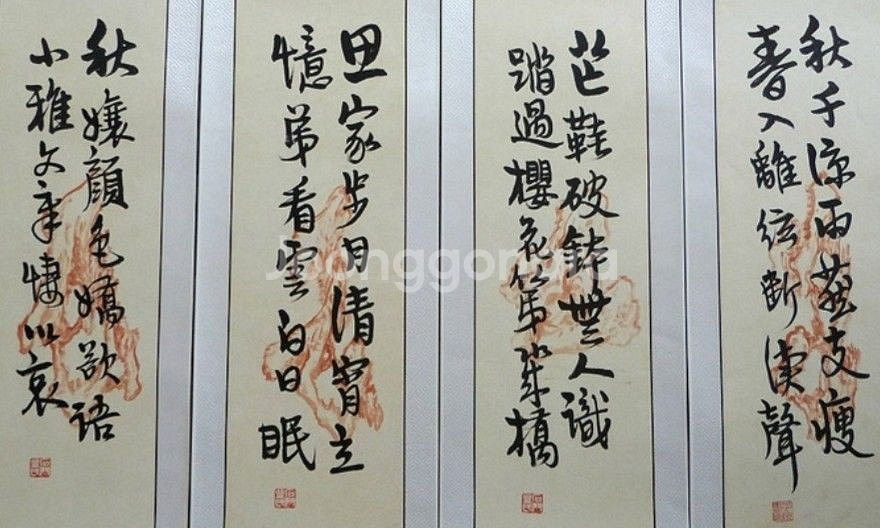 秋千涼雨支瘦
春入離絃斷漢聲
芒鞋破鉢無人識
踏過櫻花第幾橋
思家步月清宵立
憶弟看雲白日眠
秋孃顏色嬌欲語
小雅文章悽以哀
Joonggonara